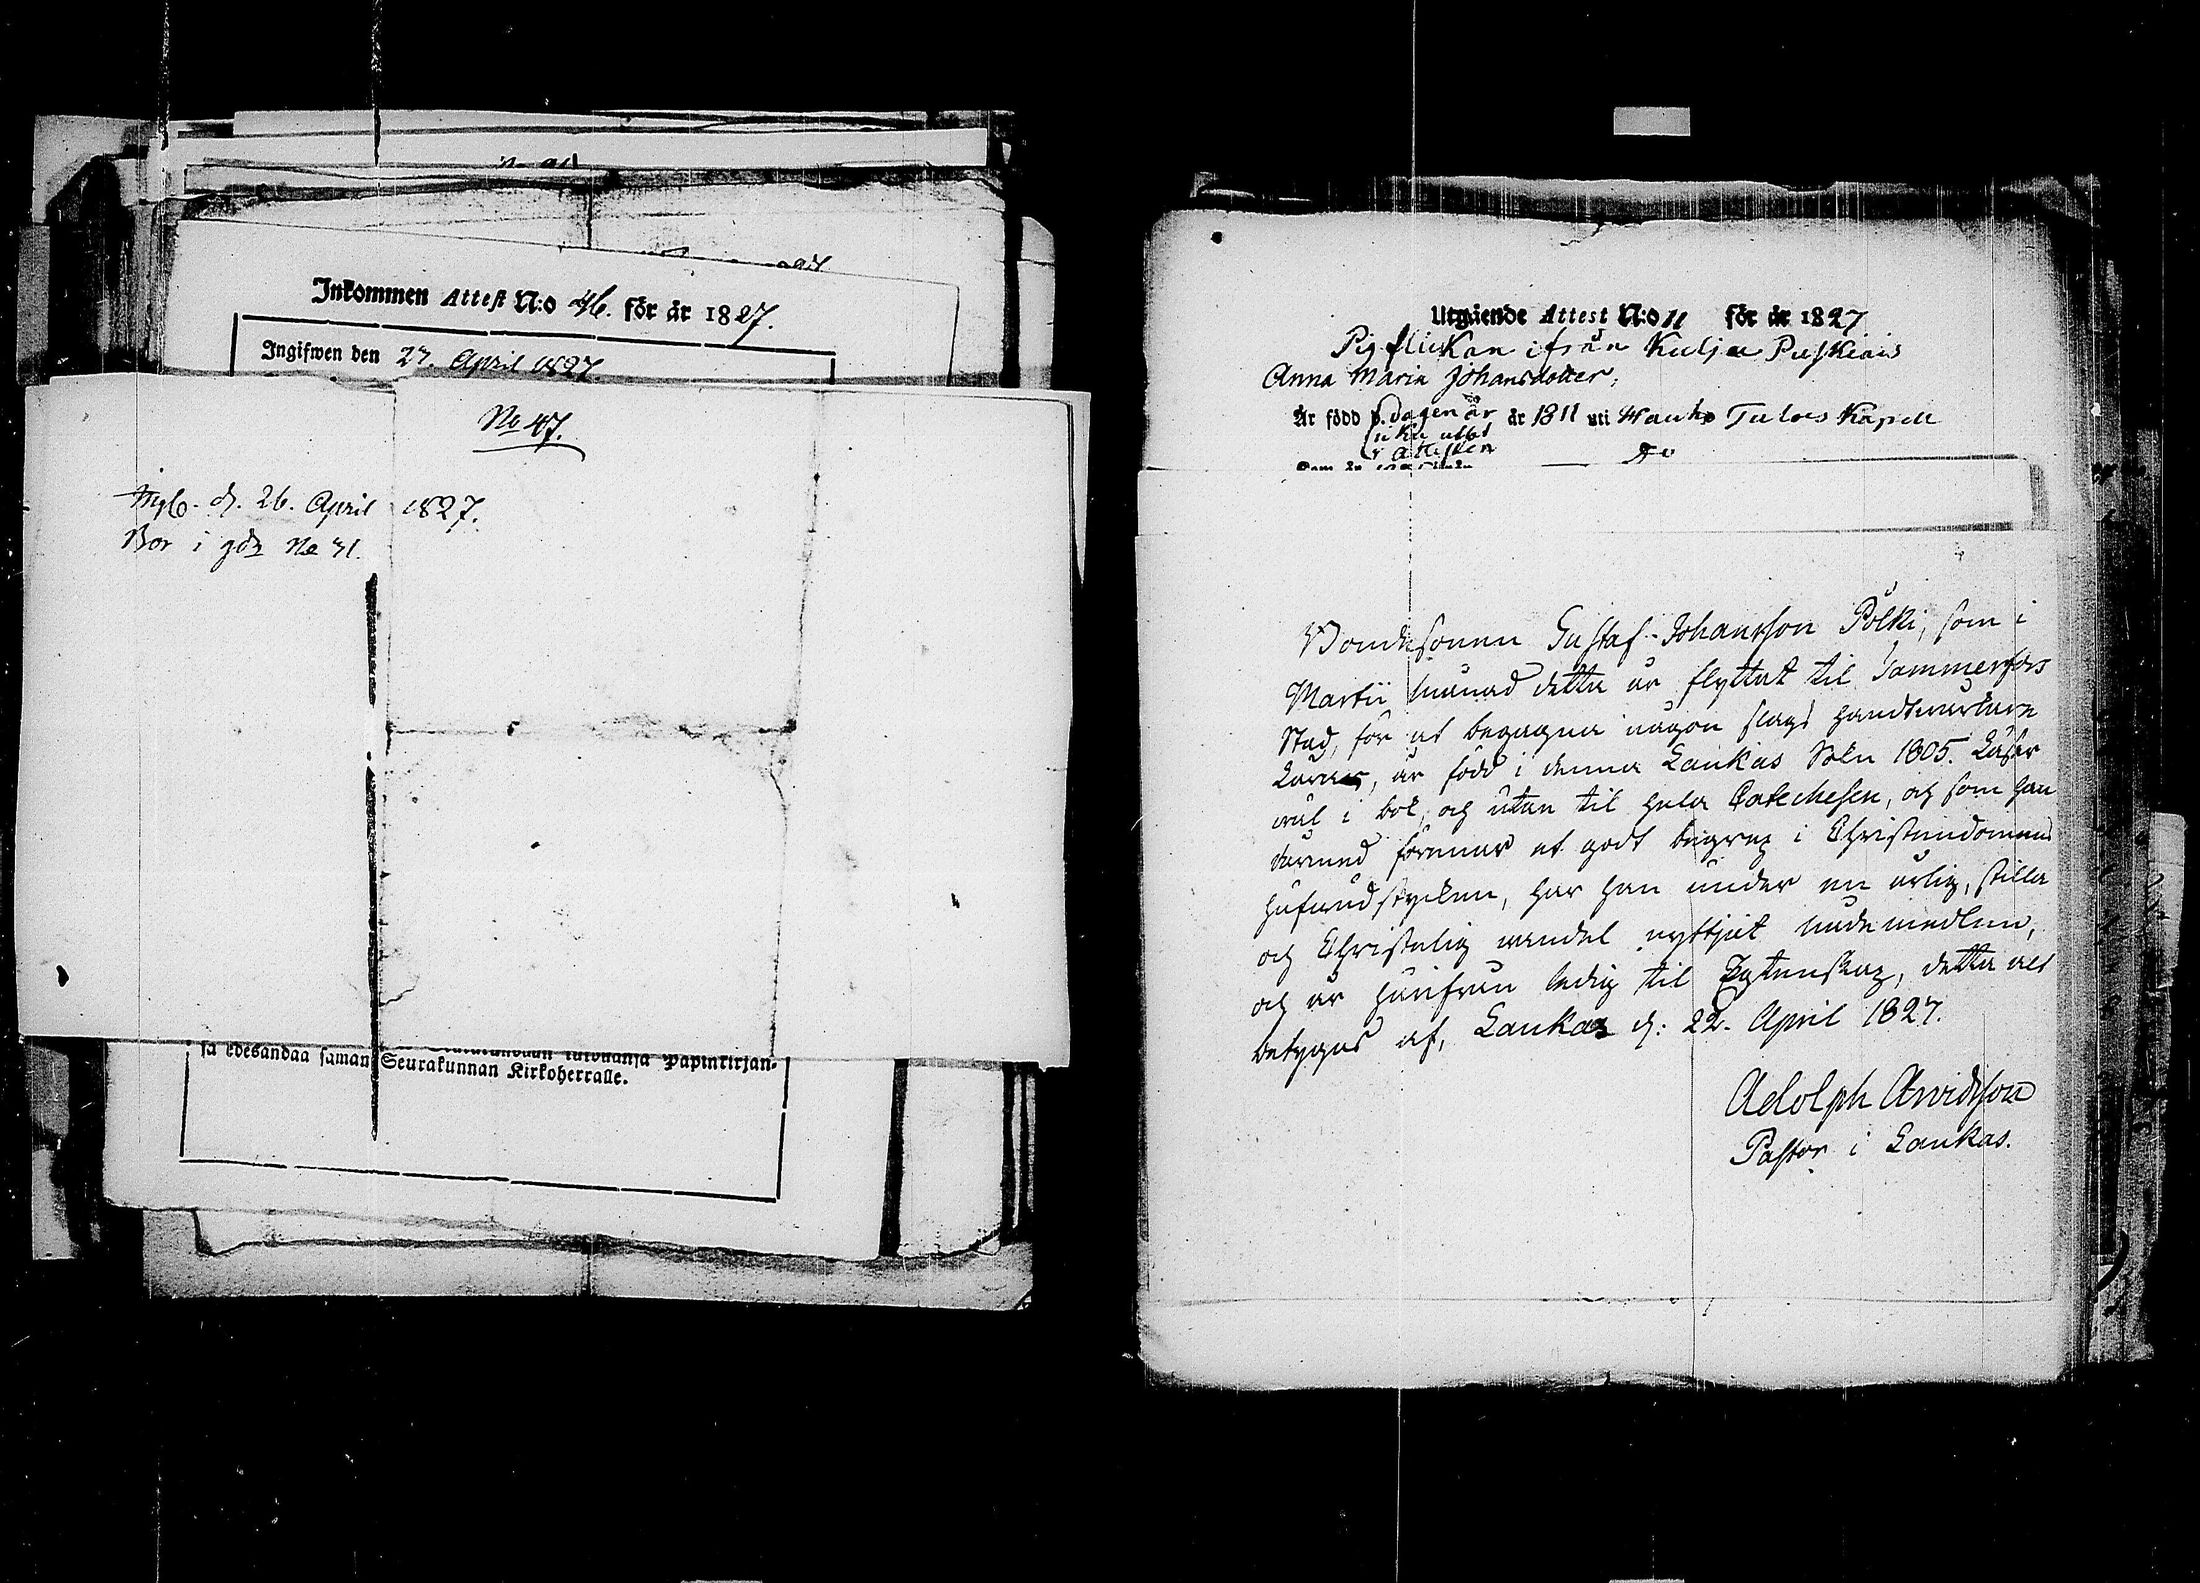 Inkommen Attest N:o 46. för år 1827.
Ingifwen den 27. April 1827.
No 47.
d. 26. April 1827.
Bor i gdn No 31.
sa edesandaa saman Seurakunnan tulduansa Papinkirjan-
Seurakunnan Kirkoherralle.
Utgående Attest N:o 11 för år 1827
Pigflickan ifrån Kulju Puskiais
Anna Maria Johansdotter,
Är född d. dagen är år 1811 uti Hauho Tulois Kapell
icke utsat
i attesten
Do
Bondesonen Gustaf Johansson Pölki, som i
Martii månad detta år flyttat til Tammerfors
Stad, för at begagna någon slags handtwerkare
, är född i denna Laukas Sokn 1805. Läser
wäl i bok, och utan til hela Catechesen, och som han
dermed förenar et godt begrep i Christendomens
hufwudstycken, har han under en ärlig, stilla
och Christelig wandel nyttjat nådemedlen,
och är härifrån ledig til Egtenskap, detta alt
betygas af, Laukas d: 22. April 1827.
Adolph Arvidsson
Pastor i Laukas.